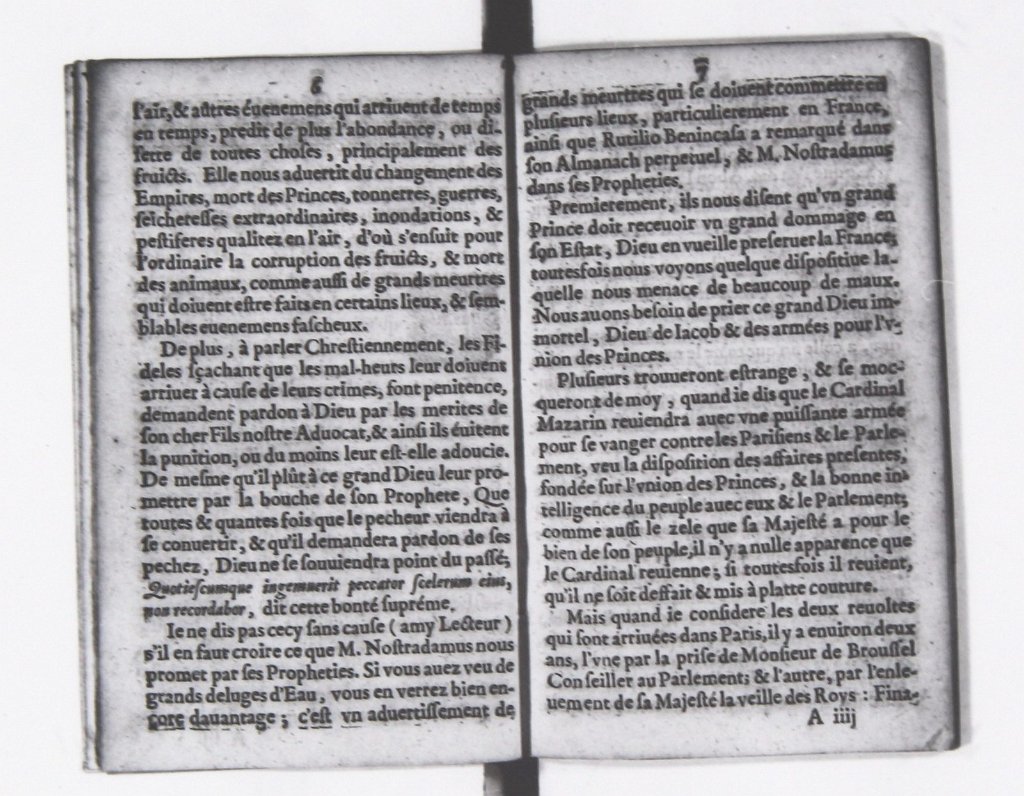 6
l'air, & aûtres éuenemens qui arriuent de temps
en temps, predit de plus l'abondance, ou di-
ſette de toutes choſes, principalement des
fruicts. Elle nous aduertit du changement des
Empires, mort des Princes, tonnerres, guerres,
ſeichereſſes extraordinaires, inondations, &
peſtiferes qualitez en l'air, d'où s'enſuit pour
l'ordinaire la corruption des fruicts, & mort
des animaux, comme auſſi de grands meurtres
qui doiuent eſtre faits en certains lieux, & ſem-
blables euenemens faſcheux.
De plus, à parler Chreſtiennement, les Fi-
deles ſçachant que les mal-heurs leur doiuent
arriuer à cauſe de leurs crimes, font penitence,
demandent pardon à Dieu par les merites de
ſon cher Fils noſtre Aduocat, & ainſi ils éuitent
la punition, ou du moins leur eſt-elle adoucie.
De meſme qu'il plût à ce grand Dieu leur pro-
mettre par la bouche de ſon Prophete, Que
toutes & quantes fois que le pecheur viendra à
ſe conuertir, & qu'il demandera pardon de ſes
pechez, Dieu ne ſe ſouuiendra point du paſſé,
Quotieſcumque ingemuerit peccator ſcelerum eius,
non recordabor, dit cette bonté ſupréme.
Ie ne dis pas cecy ſans cauſe (amy Lecteur)
s'il en faut croire ce que M. Noſtradamus nous
promet par ſes Propheties. Si vous auez veu de
grands deluges d'Eau, vous en verrez bien en-
core dauantage; c'eſt vn aduertiſſement de
7
grands meurtres qui ſe doiuent commettre en
pluſieurs lieux, particulierement en France,
ainſi que Rutilio Benincaſa a remarqué dans
ſon Almanach perpetuel, & M. Noſtradamus
dans ſes Propheties.
Premierement, ils nous diſent qu'vn grand
Prince doit receuoir vn grand dommage en
ſon Eſtat, Dieu en vueille preſeruer la France;
toutesfois nous voyons quelque diſpoſitiue la-
quelle nous menace de beaucoup de maux.
Nous auons beſoin de prier ce grand Dieu im-
mortel, Dieu de Iacob & des armées pour l'v-
nion des Princes.
Pluſieurs trouueront eſtrange, & ſe moc-
queront de moy, quand ie dis que le Cardinal
Mazarin reuiendra auec vne puiſſante armée
pour ſe vanger contre les Pariſiens & le Parle-
ment, veu la diſpoſition des affaires preſentes,
fondée ſur l'vnion des Princes, & la bonne in-
telligence du peuple auec eux & le Parlement;
comme auſſi le zele que ſa Majeſté a pour le
bien de ſon peuple, il n'y a nulle apparence que
le Cardinal reuienne; ſi toutesfois il reuient,
qu'il ne ſoit deffait & mis à platte couture.
Mais quand ie conſidere les deux reuoltes
qui ſont arriuées dans Paris, il y a enuiron deux
ans, l'vne par la priſe de Monſieur de Brouſſel
Conſeiller au Parlement; & l'autre, par l'enle-
uement de ſa Majeſté la veille des Roys : Fina-
A iiij